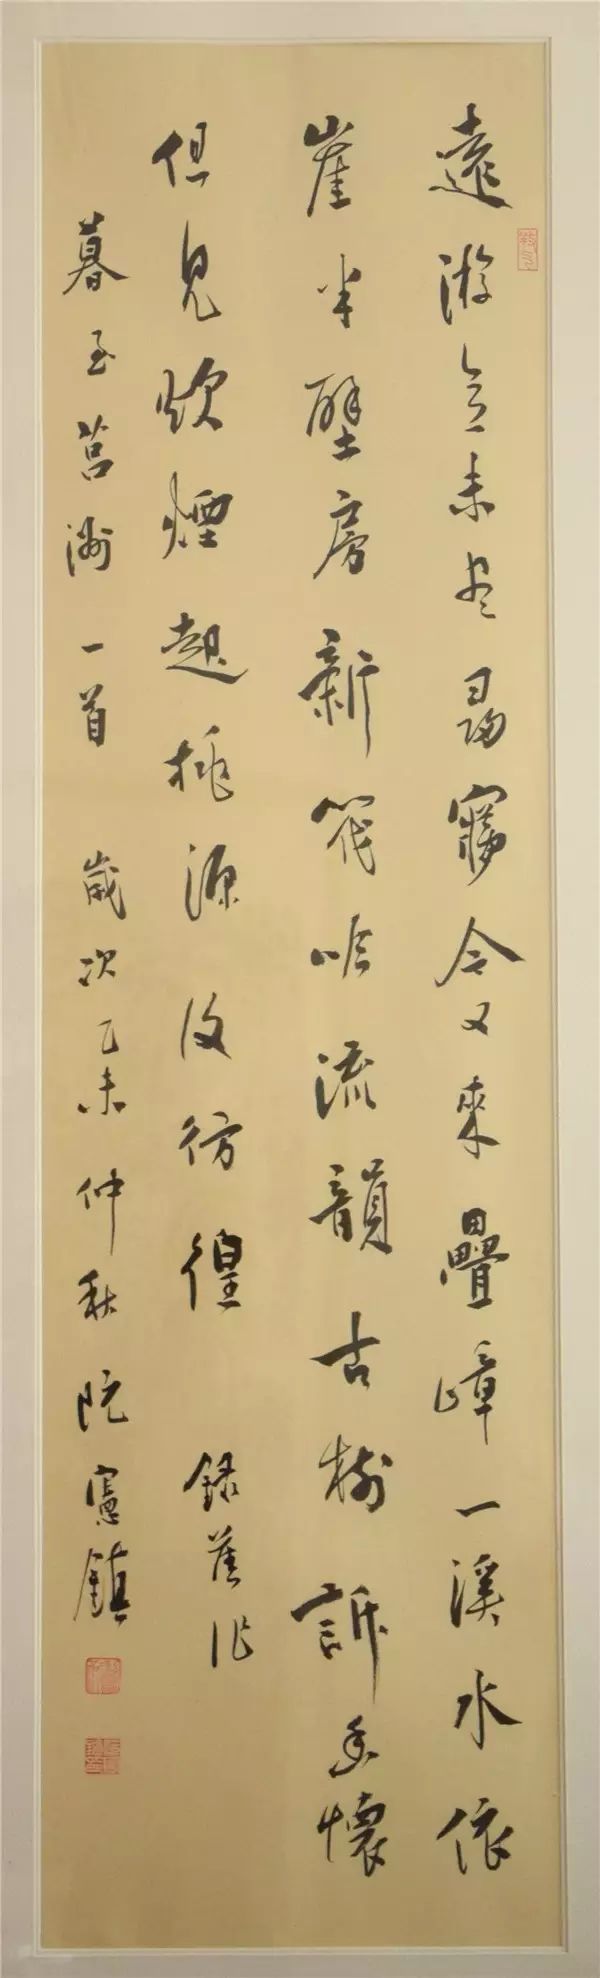 遠游意未尽尋夢今又來疊嶂一溪水依
崖半壁房新筏吟流韻古樹訴幽懷
但見炊煙起桃源復彷徨 錄舊作
暮至莒洲一首 歲次乙未仲秋 阮憲鎮